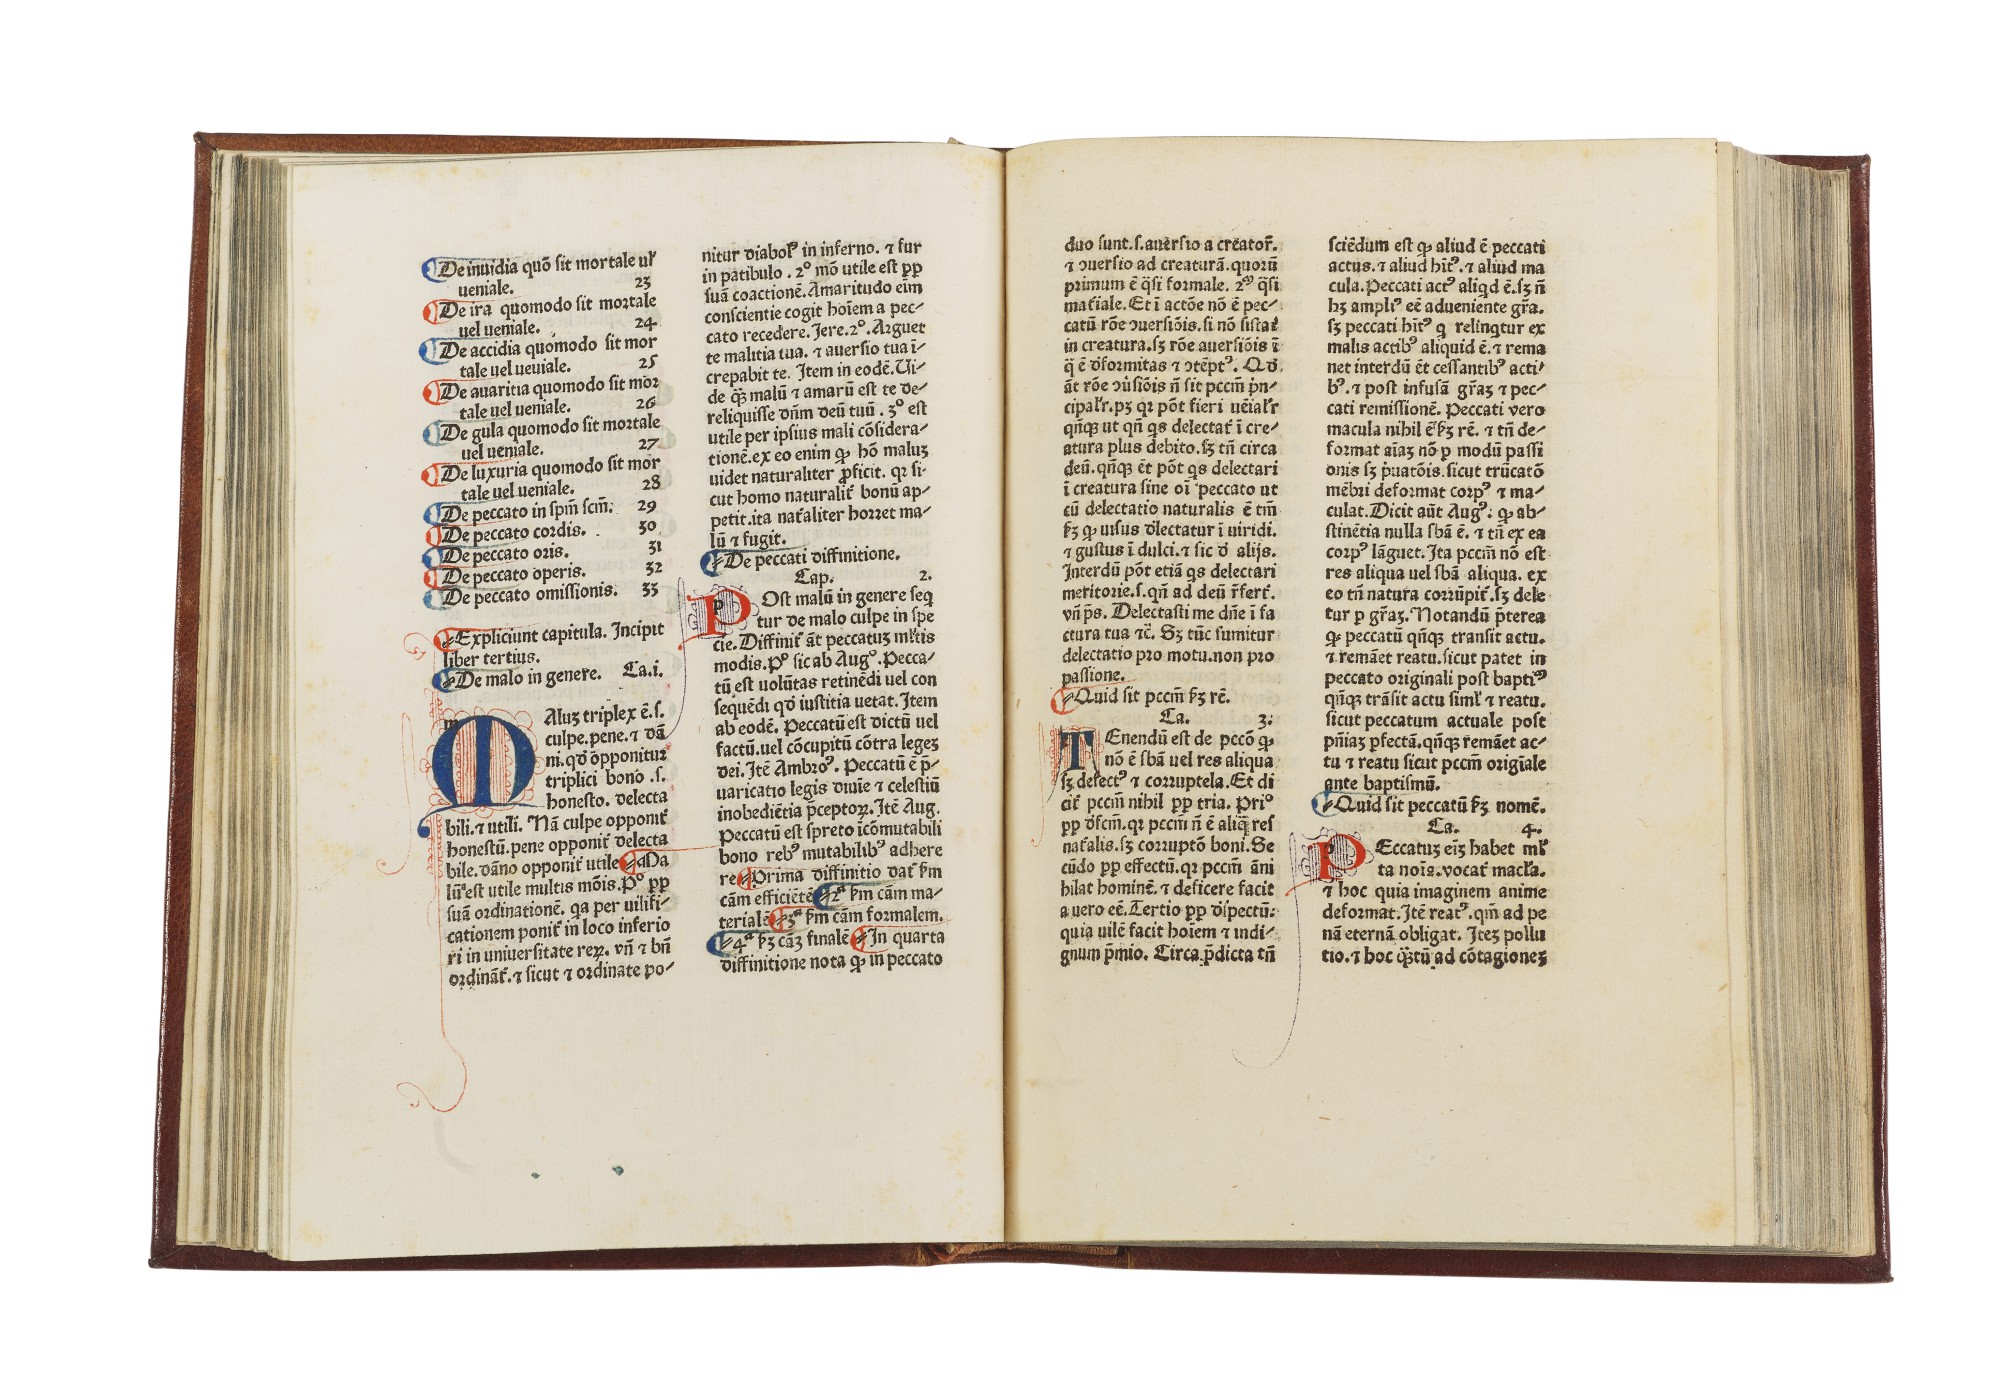 De inuidia quō sit mortale ul̓
ueniale. 23
De ira quomodo sit mortale
uel ueniale. 24
De accidia quomodo sit mor
tale uel ueuiale. 25
De auaritia quomodo sit mor
tale uel ueniale. 26
De gula quomodo sit mortale
uel ueniale. 27
De luxuria quomodo sit mor
tale uel ueniale. 28
De peccato in spm̄ scm̄. 29
De peccato cordis. 30
De peccato oris. 31
De peccato operis. 32
De peccato omissionis. 33
Expliciunt capitula. Incipit
liber tertius.
De malo in genere. Ca.i.
m Aluꝫ triplex ē.s.
culpe.pene.⁊ dā
ni.qd̄ opponitur
triplici bono .s.
honesto. delecta
bili.⁊ utili. Nā culpe opponit̄
honestū.pene opponit̄ delecta
bile.dāno opponit̄ utile Ma
lū est utile multis mōis.Pº pp̄
suā ordinationē. qa per uilifi-
cationem ponit̄ in loco inferio
ri in uniuersitate reꝝ. vñ ⁊ bñ
ordinat̄.⁊ sicut ⁊ ordinate po-
nitur diabolꝰ in inferno. ⁊ fur
in patibulo . 2º mō utile est pp̄
suā coactionē.Amaritudo eīm
conscientie cogit hoīem a pec-
cato recedere. Jere.2º. Arguet
te malitia tua. ⁊ auersio tua ī-
crepabit te. Item in eodē. Ui-
de qꝫ malū ⁊ amarū est te de-
reliquisse dn̄m deū tuū . 3º est
utile per ipsius mali cōsidera-
tionē.ex eo enim ꝙ hō maluꝫ
uidet naturaliter ꝓficit. qr si-
cut homo naturalit̄ bonū ap-
petit.ita nat̄aliter horret ma-
lū ⁊ fugit.
De peccati diffinitione.
Cap. 2.
p Ost malū in genere seq̄
tur de malo culpe in spe
cie. Diffinit̄ āt peccatuꝫ ml̓tis
modis.Pº sic ab Augº.Pecca-
tū est uolūtas retinēdi uel con
sequēdi qd̄ iustitia uetat. Item
ab eodē. Peccatū est dictū uel
factū.uel cōcupitū cōtra legeꝫ
dei.Itē Ambroꝰ. Peccatū ē p̄-
uaricatio legis diuīe ⁊ celestiū
inobediētia p̄ceptoꝝ.Itē Aug.
Peccatū est spreto īcōmutabili
bono rebꝰ mutabilibꝰ adhere
re Prima diffinitio dat̄ ẜm
cām efficiētē 2ª ẜm cām ma-
terialē 3ª ẜm cām formalem.
4ª ẜꝫ cāꝫ finalē In quarta
diffinitione nota ꝙ in peccato
duo sunt.s.auersio a creator̄.
⁊ ɔuersio ad creaturā.quorū
primum ē q̄si formale. 2ᵐ q̄si
mat̄iale. Et ī actōe nō ē pec-
catū rōe ɔuersiōis.si nō sistat̄
in creatura.sꝫ rōe auersiōis ī
q̄ ē d̄formitas ⁊ ɔtēptꝰ. Qd̄
āt rōe ɔūsiōis n̄ sit pccm̄ p̄n-
cipal̓r.pꝫ qr pōt fieri uēial̓r
qn̄qꝫ ut qn̄ qs delectat̄ ī cre-
atura plus debito.sꝫ tn̄ circa
deū.qn̄qꝫ ēt pōt qs delectari
ī creatura sine oī peccato ut
cū delectatio naturalis ē tm̄
ẜꝫ ꝙ uisus d̄lectatur ī uiridi.
⁊ gustus ī dulci.⁊ sic d̄ alijs.
Interdū pōt etiā qs delectari
meritorie.s.qn̄ ad deū r̄fert̄.
vn̄ p̄s. Delectasti me dn̄e ī fa
ctura tua ⁊c̄. Sꝫ tūc sumitur
delectatio pro motu.non pro
passione.
Quid sit pccm̄ ẜꝫ rē.
Ca. 3.
T Enendū est de pccō ꝙ
nō ē sbā uel res aliqua
sꝫ defectꝰ ⁊ corruptela. Et di
cit̄ pccm̄ nihil pp̄ tria. Priº
pp̄ d̄fcm̄.qr pccm̄ n̄ ē aliq̄ res
nat̄alis.sꝫ corruptō boni. Se
cūdo pp̄ effectū.qr pccm̄ āni
hilat hominē.⁊ deficere facit
a uero eē.Tertio pp̄ dispectū.
quia uilē facit hoīem ⁊ indi-
gnum p̄mio. Circa p̄dicta tn̄
sciēdum est ꝙ aliud ē peccati
actus.⁊ aliud hītꝰ.⁊ aliud ma
cula.Peccati actꝰ aliqd ē.sꝫ n̄
hꝫ ampliꝰ eē adueniente gr̄a.
sꝫ peccati hītꝰ q relinqtur ex
malis actibꝰ aliquid ē.⁊ rema
net interdū ēt cessantibꝰ acti-
bꝰ.⁊ post infusā gr̄aꝫ ⁊ pec-
cati remissionē. Peccati vero
macula nihil ē ẜꝫ rē. ⁊ tn̄ de-
format aīaꝫ nō ꝑ modū passi
onis sꝫ p̄uatōis.sicut trūcatō
mēbri deformat corpꝰ ⁊ ma-
culat. Dicit aūt Augꝰ: ꝙ ab-
stinētia nulla sbā ē. ⁊ tn̄ ex ea
corpꝰ lāguet. Ita pccm̄ nō est
res aliqua uel sbā aliqua. ex
eo tn̄ natura corrūpit̄.sꝫ dele
tur ꝑ gr̄aꝫ. Notandū p̄terea
ꝙ peccatū qn̄qꝫ transit actu.
⁊ remāet reatu.sicut patet in
peccato originali post baptiᵐ
qn̄qꝫ trāsit actu siml̓ ⁊ reatu.
sicut peccatum actuale post
pn̄iaꝫ ꝑfectā.qn̄qꝫ remāet ac-
tu ⁊ reatu sicut pccm̄ origīale
ante baptismū.
Quid sit peccatū ẜꝫ nomē.
Ca. 4.
P Eccatuꝫ eīꝫ habet ml̓
ta noīa.vocat̄ macl̓a.
⁊ hoc quia imaginem anime
deformat.Itē reatꝰ.qm̄ ad pe
nā eternā obligat. Iteꝫ pollu
tio.⁊ hoc q̄ꝫtū ad cōtagioneꝫ